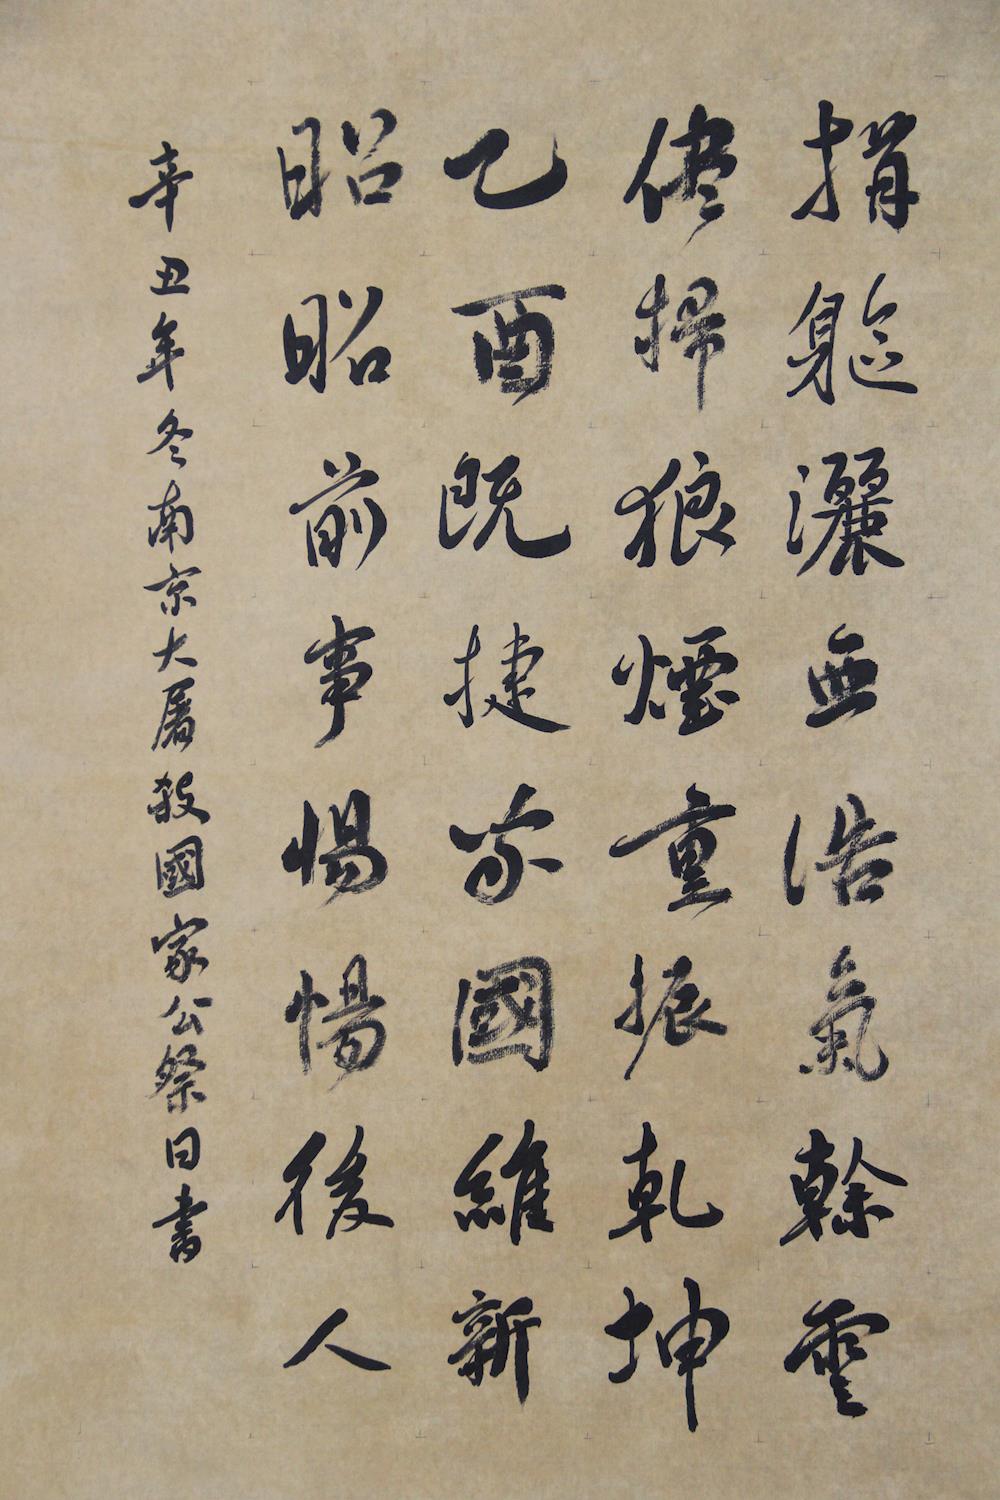 捐軀灑血浩氣幹雲
儘掃狼煙重振乾坤
乙酉既捷家國維新
昭昭前事惕惕後人
辛丑年冬南京大屠殺國家公祭日書